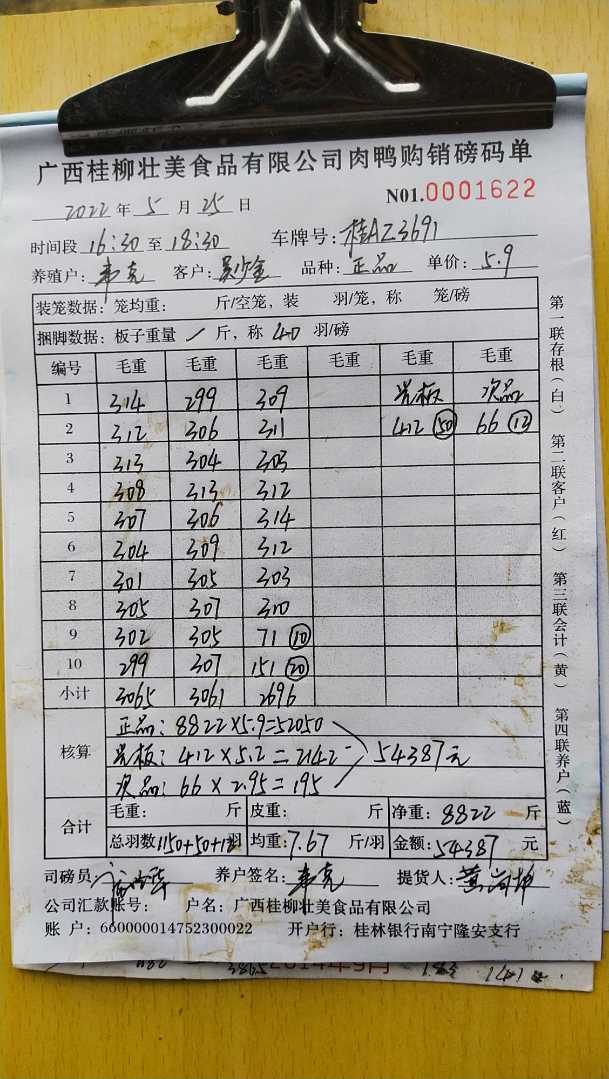 广西桂柳壮美食品有限公司肉鸭购销磅码单
2022 年 5 月 25 日 N01.0001622
时间段 16:30 至 18:30 车牌号: 桂AZ3691
养殖户: 韦克 客户: 吴少金 品种: 正品 单价: 5.9
装笼数据: 笼均重: 斤/空笼, 装 羽/笼, 称 笼/磅
捆脚数据: 板子重量 / 斤, 称 40 羽/磅
编号 毛重 毛重 毛重 毛重 毛重 毛重
1 314 299 309 光板 次品
2 312 306 311 412 (50) 66 (12)
3 313 304 303
4 308 313 312
5 307 306 314
6 304 309 312
7 301 305 303
8 305 307 310
9 302 305 71 (10)
10 299 307 151 (20)
小计 3065 3061 2696
正品: 8822×5.9=52050
核算 光板: 412×5.2=2142 54387元
次品: 66×2.95=195
合计 毛重: 斤 皮重: 斤 净重: 8822 斤
总羽数 1150+50+12 羽 均重: 7.67 斤/羽 金额: 54387 元
司磅员 养户签名: 韦克 提货人: 黄
公司汇款账号: 户名: 广西桂柳壮美食品有限公司
账 户: 660000014752300022 开户行: 桂林银行南宁隆安支行
第一联存根(白) 第二联客户(红) 第三联会计(黄) 第四联养户(蓝)